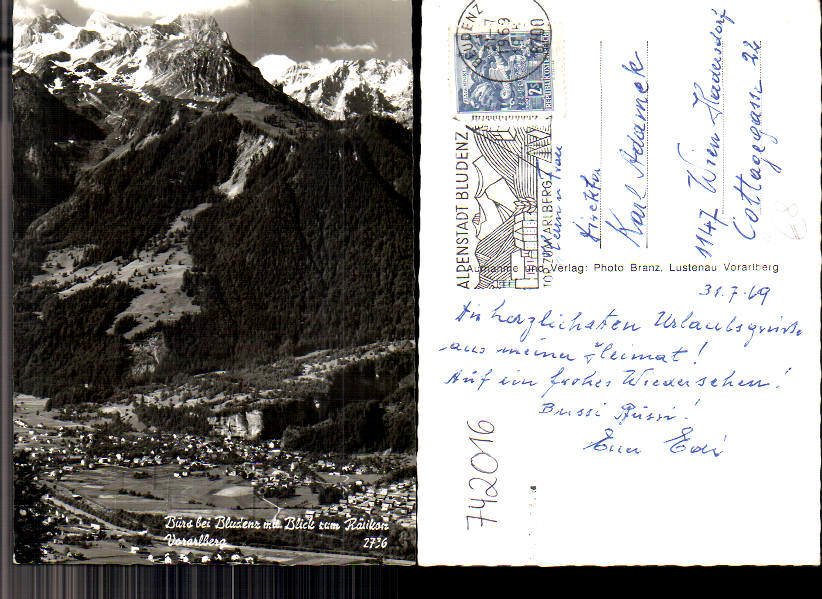 Bürs bei Bludenz mit Blick zum Rätikon
Vorarlberg 2736
BLUDENZ
1969
6700
2S
REPUBLIK ÖSTERREICH
ALPENSTADT BLUDENZ
TOR ZUM ARLBERG
Herrn u Frau
Direktor
Karl Adamek
1147 Wien Hadersdorf
Cottagegasse 22
68
Aufnahme und Verlag: Photo Branz, Lustenau Vorarlberg
31.7.69
Die herzlichsten Urlaubsgrüsse
aus meiner Heimat!
Auf ein frohes Wiedersehen!
Bussi Bussi!
Euer Edi
742016